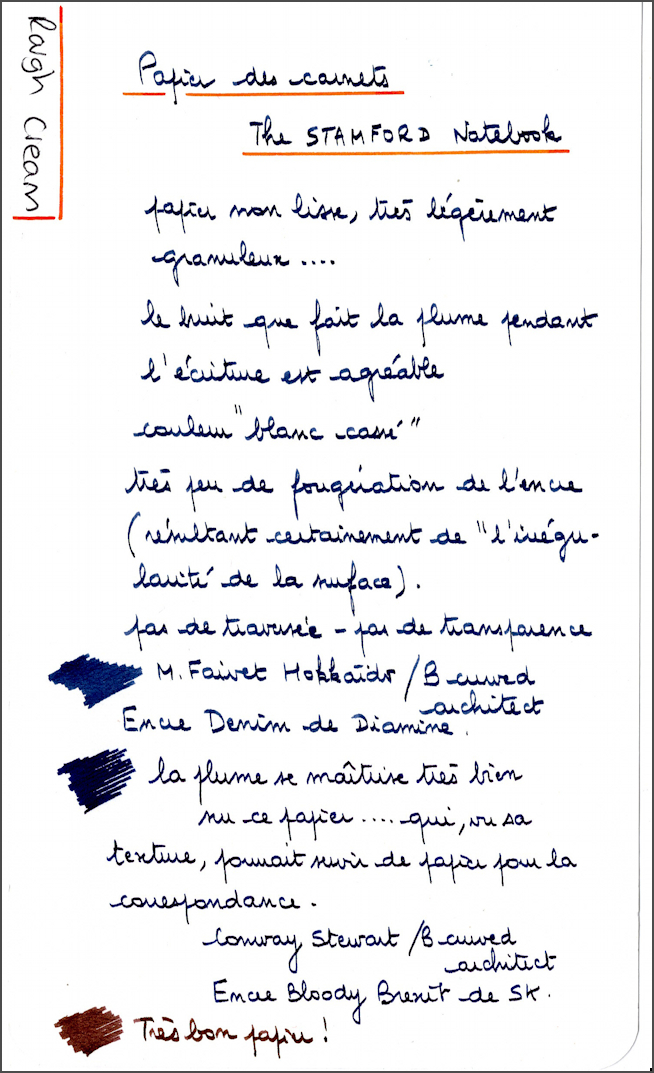 Rough Cream
Papier des carnets
The STAMFORD Notebook
papier non lisse, très légèrement
granuleux ....
le bruit que fait la plume pendant
l'écriture est agréable
couleur "blanc cassé"
très peu de fougération de l'encre
(résultant certainement de "l'irrégu-
larité de la surface).
pas de traversée - pas de transparence
M. Faivet Hokkaïdo / B curved
architect
Encre Denim de Diamine.
la plume se maîtrise très bien
sur ce papier .... qui, vu sa
texture, pourrait servir de papier pour la
correspondance.
Conway Stewart / B curved
architect
Encre Bloody Brexit de SK.
Très bon papier !